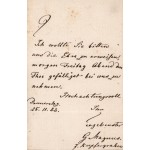 Ich wollte Sie bitten
uns die Ehre zu erweisen
morgen Freitag Abend den
Thee gefälligst bei uns zu
nehmen.
Hochachtungsvoll
Ihr
Donnerstag
ergebenster
G. Magnus